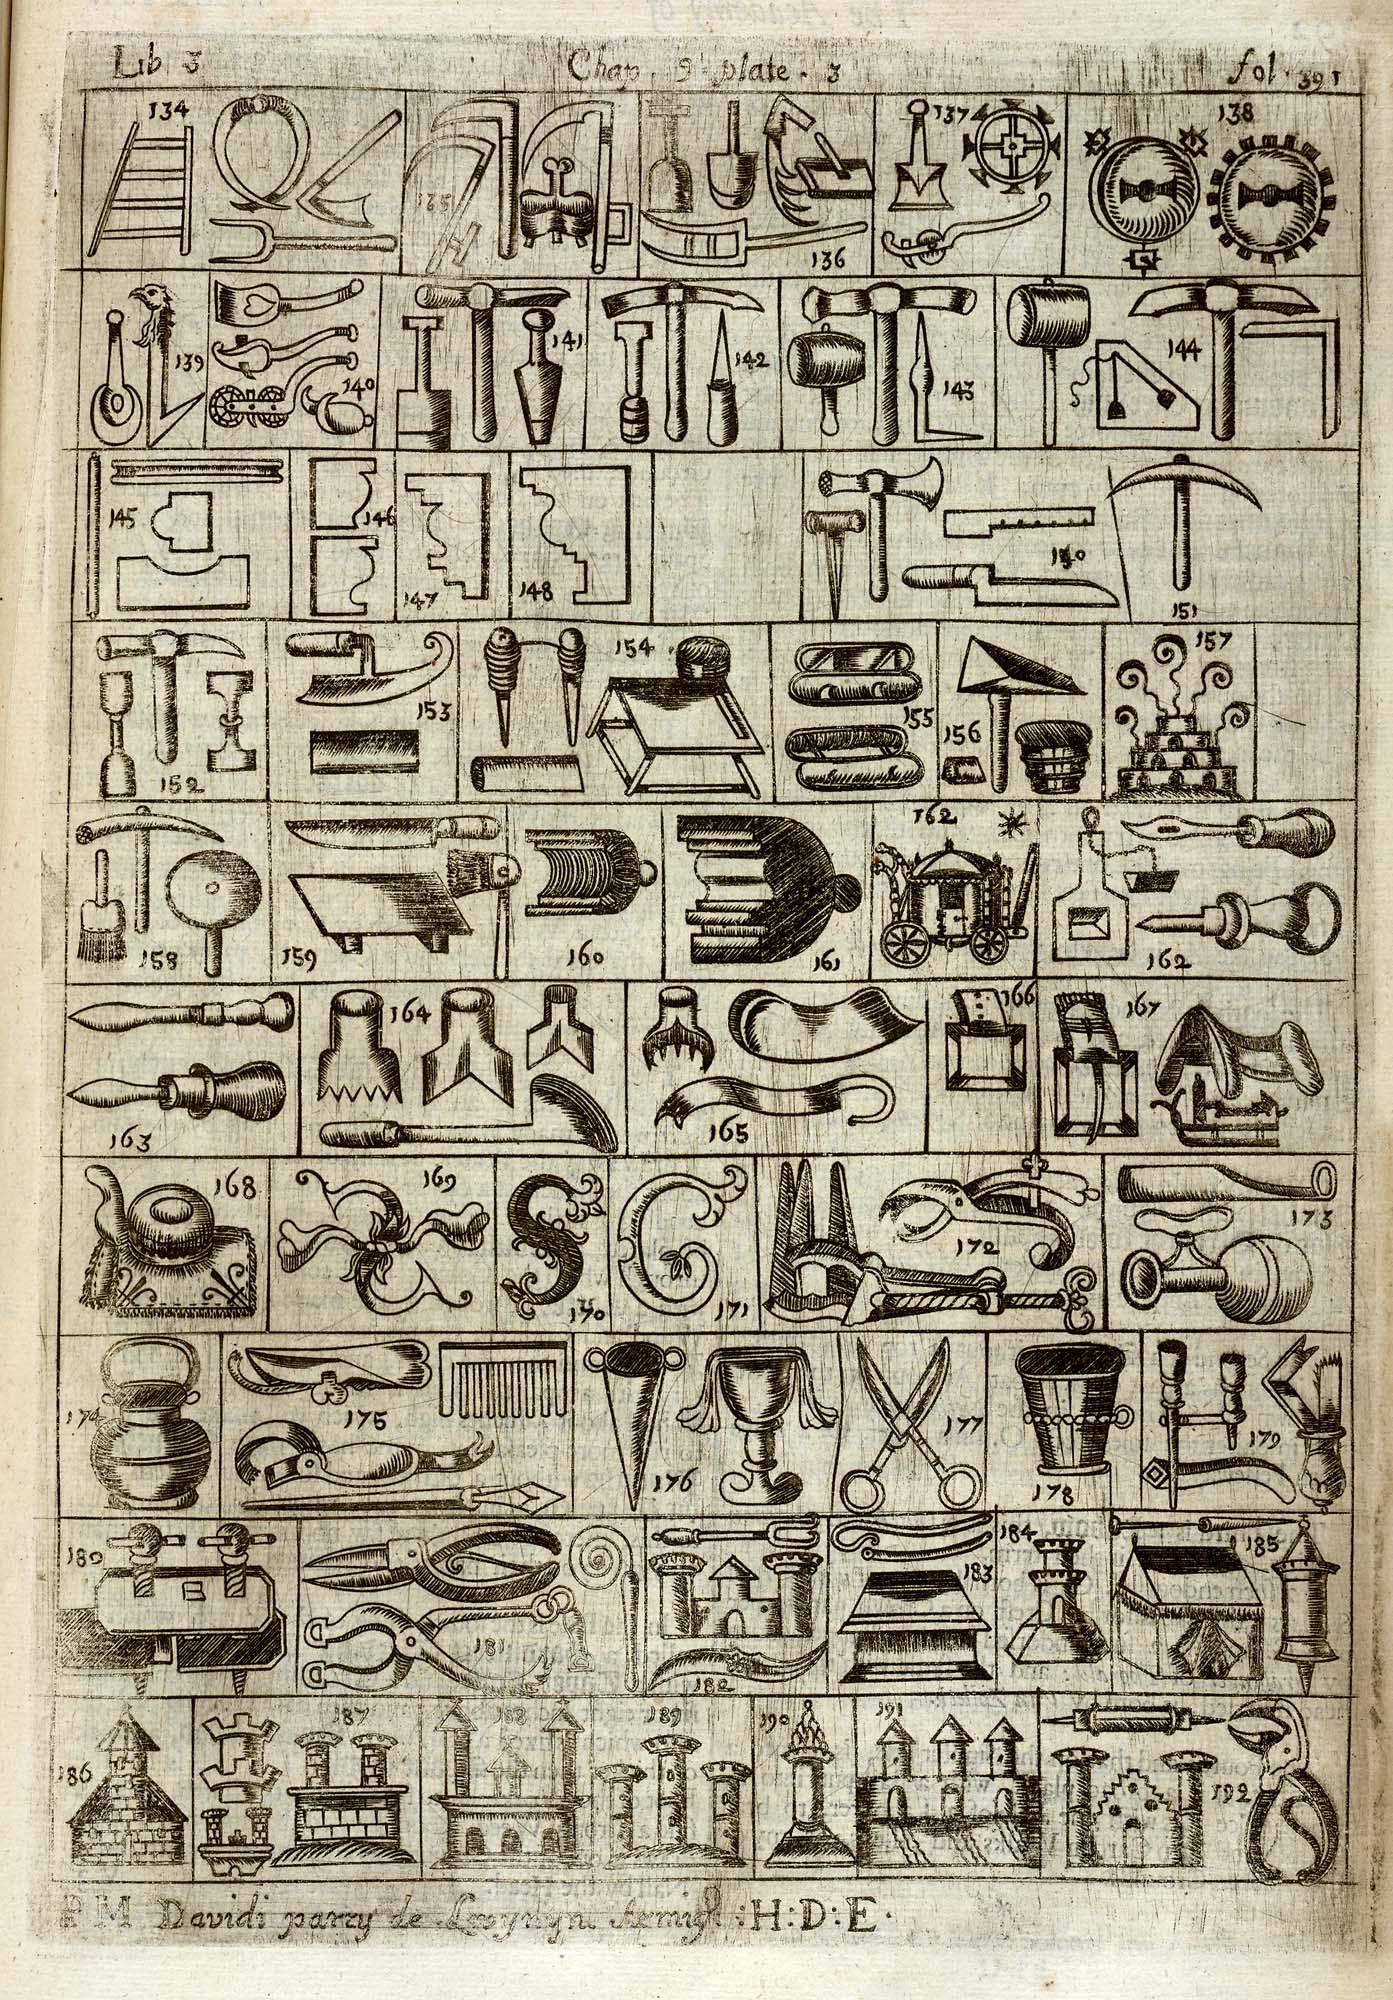 Lib 3 Chap. 9 plate. 3 fol. 391
134 136 137 138
139 140 141 142 143 144
145 146 147 148 150 151
152 153 154 155 156 157
158 159 160 161 162 162
163 164 165 166 167
168 169 170 171 172 173
174 175 176 177 178 179
180 181 182 183 184 185
186 187 188 189 190 191 192
P M Davidi parry de :H:D:E.